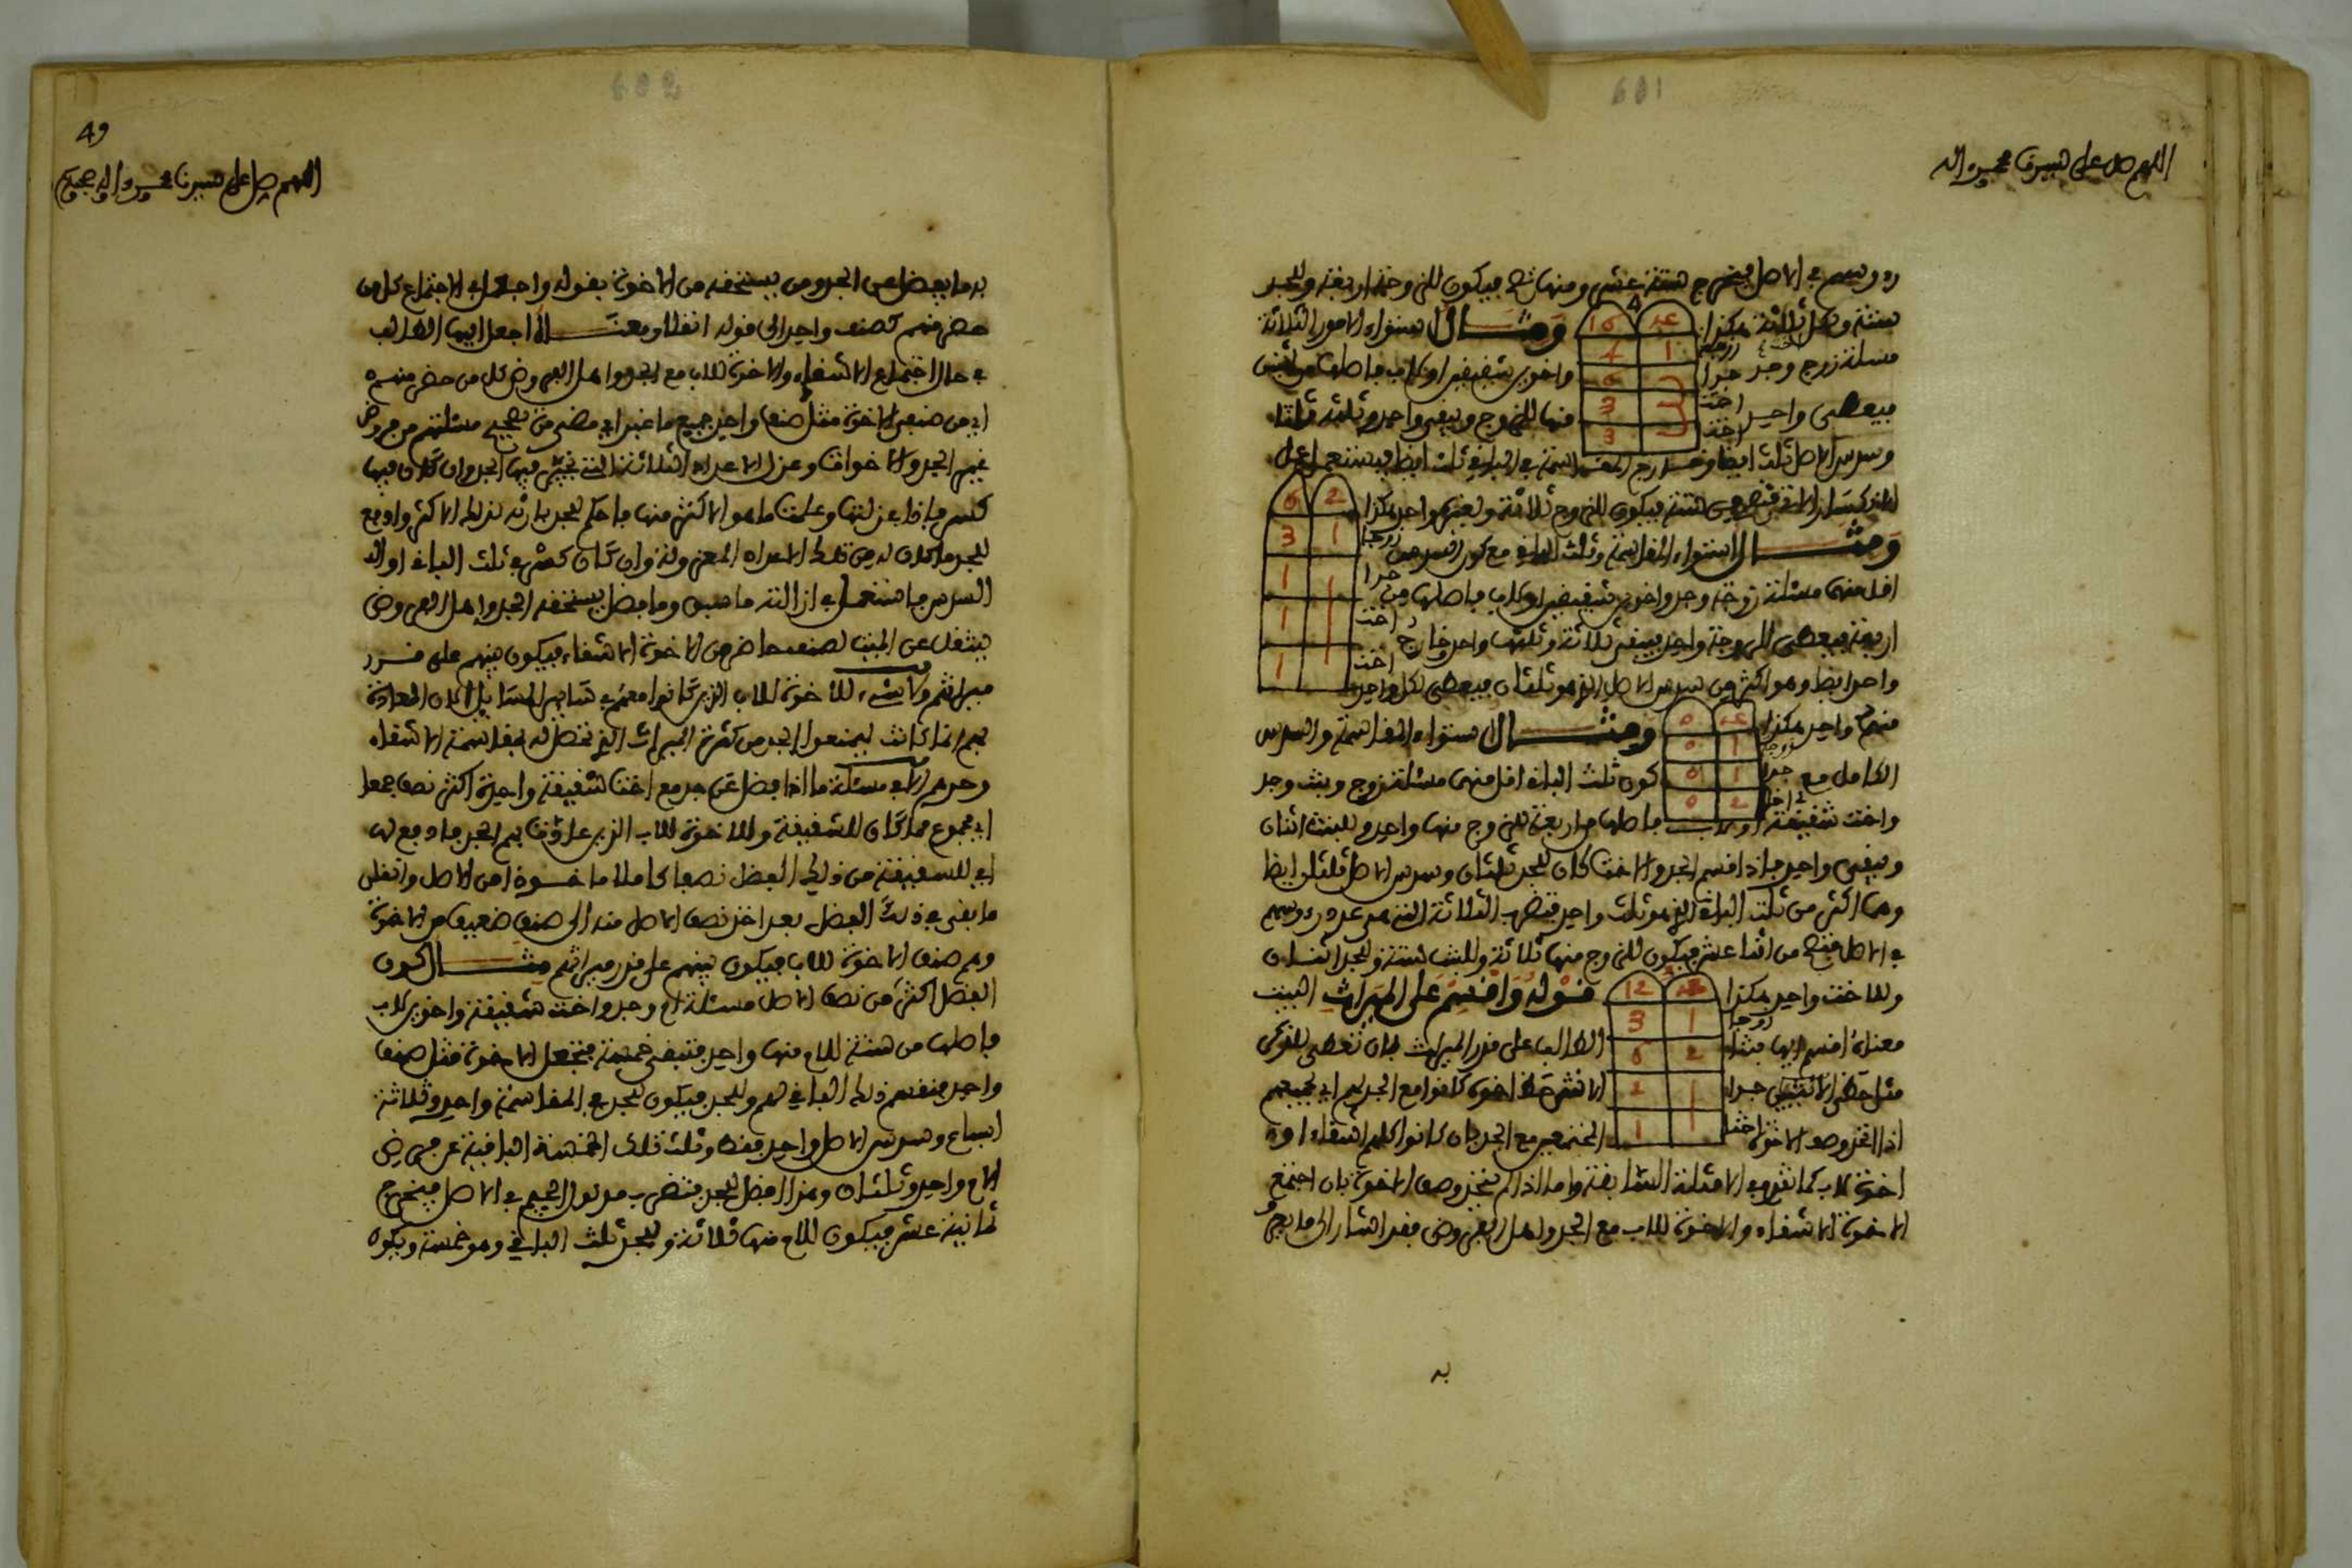 601
اللهم صل على سيدنا محمد واله
رءوسهم في الاصل فيخرج ستة عشر ومنها تصح فيكون للزوجة اربعة وللجد
ستة ولكل ثلاثة هكذا
ومثال استواء الامور الثلاثة
مسئلة زوج وجد
واخوين شقيقين او لاب فاصلها من اثنين
فيعطى واحد
منها للزوج ويبقى واحد وثلثه ثلث
وسدس الاصل ثلث ايضا وخارج المقاسمة في الباقي ثلث ايضا فيستعمل
فيكون للزوج ثلاثة ولغيره واحد هكذا
ومثال استواء المقاسمة وثلث الباقي مع كون السدس
اقل منهما مسئلة زوجة وجد واخوين شقيقين او لاب فاصلها من
اربعة فيعطى للزوجة واحد فيبقى ثلاثة وثلثها واحد وخارج
واحد ايضا وهو اكثر من سدس الاصل الذي هو ثلثان فيعطى لكل واحد
منهم واحد هكذا
ومثال استواء المقاسمة والسدس
الكامل مع
كون ثلث الباقي اقل منهما مسئلة زوج وبنت وجد
واخت شقيقة او لاب فاصلها من اربعة للزوج منها واحد وللبنت اثنان
ويبقى واحد فاذا اقسم الجد والاخت كان للجد ثلثان وسدس الاصل ثلثان ايضا
وهما اكثر من ثلث الباقي الذي هو ثلث واحد فتضرب الثلاثة التي هي عدد رءوسهم
في الاصل فتصح من اثنا عشر فيكون للزوج منها ثلاثة وللبنت ستة وللجد اثنان
وللاخت واحد هكذا
قوله واقسم على الميراث البيت
معناه اقسم ايها
الطالب على قدر الميراث بان تعطى للذكر
مثل حظ الانثيين
اخوة كانوا مع الجد
اذا اتحد وصف الاخوة
المجتمعين مع الجد بان كانوا كلهم اشقاء او
اخوة لاب كما تقدم في الامثلة السابقة واما اذا لم يتحد وصف الاخوة بان اجتمع
الاخوة الاشقاء والاخوة للاب مع الجد واهل الفروض فقد اشار الى ما
به
زوجة
جد
اخت
اخت
16
4
6
3
3
2
6
1
3
1
1
1
12
1
3
2
6
2
1
602
49
اللهم صل على سيدنا محمد واله وصحبه
به ما يفضل عن الجد ومن يستحقه من الاخوة بقوله واجعل في الاجتماع كل من
حضر منهم كصنف واحد الى قوله انقلا ومعناه اجعل ايها الطالب
في حال اجتماع الاشقاء والاخوة للاب مع الجد واهل الفروض كل من حضر منهم
اي من صنفي الاخوة مثل صنف واحد جميع ما غبر اي مضى من تصحيح مسئلتهم من فروض
غير الجد والاخوات وعزل الاعداد الثلاثة التي تخير فيها الجد وان كان فيها
كسر فاذا عزلتها وعلمت ما هو الاكثر منها فاحكم للجد بارثه لذلك الاكثر وادفع
للجد ما كان له من تلك الاعداد المعزولة وان كان كسر في ثلث الباقي او
السدس فاستعمل في ازالته ما سبق وما فضل يستحقه الجد واهل الفروض
ينتقل عن الميت لصنف حاضر من الاخوة الاشقاء فيكون بينهم على قدر
ميراثهم ولا شيء للاخوة للاب الذين كانوا معهم في سائر المسائل لان المعادة
بهم انما كانت ليمنعوا الجد من كثرة الميراث الذي تحصل له بمقاسمة الاشقاء
وحدهم الا في مسئلة ما اذا فضل عن جد مع اخت شقيقة واحدة اكثر نصف
اي مجموع ما كان للشقيقة وللاخوة للاب الذين بهم الجد فادفع لها
اي للشقيقة من ذلك الفضل نصفا كاملا ماخوذا من الاصل وانقل
ما بقي في ذلك الفضل بعد اخذ نصف الاصل منه الى صنف ضعيف من الاخوة
وهم صنف الاخوة للاب فيكون بينهم على قدر ميراثهم مثال كون
الفضل اكثر من نصف الاصل مسئلة ام وجد واخت شقيقة واخوين لاب
فاصلها من ستة للام منها واحد فتبقى خمسة فتجعل الاخوة مثل صنف
واحد فتقسم ذلك الباقي لهم وللجد فيكون للجد في المقاسمة واحد وثلاثة
اسباع وسدس الاصل واحد فقط وثلث تلك الخمسة الباقية عن فرض
الام واحد وثلثان وهذا افضل للجد فتضرب مدلول الجيم في الاصل فيخرج
ثمانية عشر فيكون للام منها ثلاثة وللجد ثلث الباقي وهو خمسة ويكون